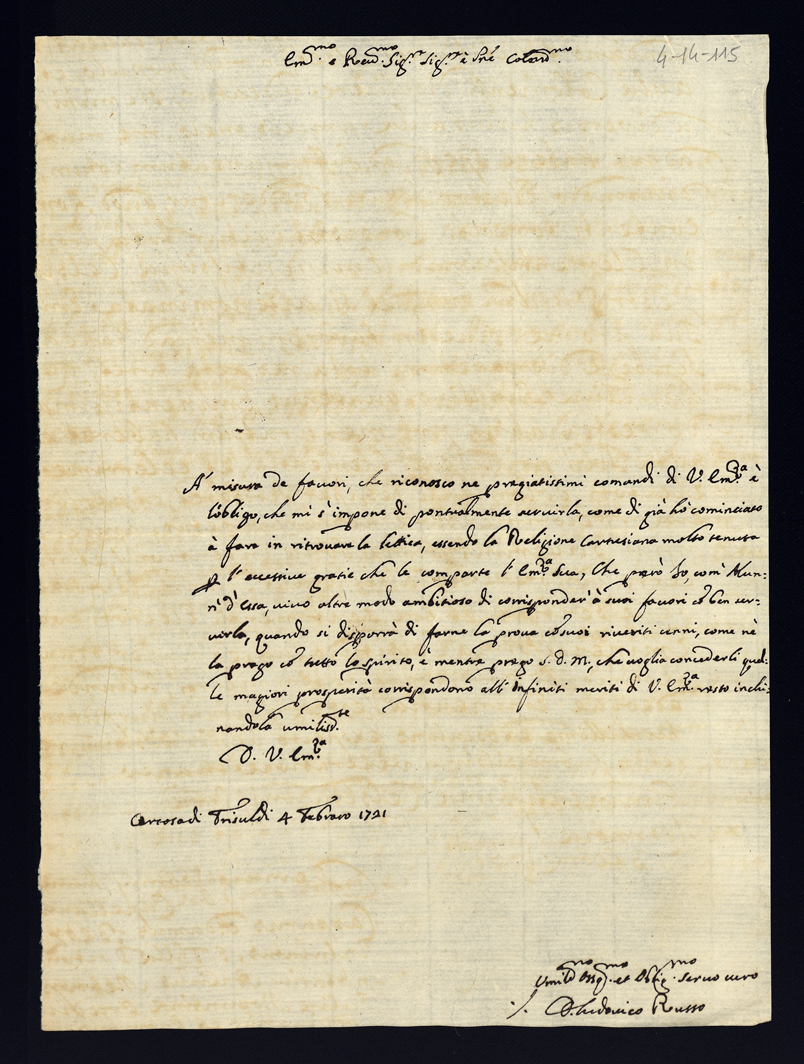 Em.mo e Rev.mo Sig.re Sig.re e Pne Colend.mo
4-14-115
A' misura de favori, che riconosco ne pregiatissimi comandi di V. Em.za è
l'obligo, che mi s'impone di pontualmente servirla, come di già hò cominciato
à fare in ritrovare la lettica, essendo la Religione Cartusiana molto tenuta
p l'eccessive gratie che le comparte l'Em.za Sua, Che però Io, com' Alun-
n' d'essa, vivo oltre modo ambitioso di corrisponder' à suoi favori cõ ben ser-
virla, quando si disporrà di farne la prova cõ suoi riveriti cenni, come nè
la prego cõ tutto lo spirito, è mentre prego S. D. M., che voglia concederli quel-
le magiori prosperità corrispondono all' infiniti meriti di V. Em.za resto incli-
nandola umiliss.te
D. V. Em.za
Certosa di Trisulti 4 Febraro 1721
Umil.mo Dev.mo et Oblig.mo Servo vero
D. Ludovico Russo